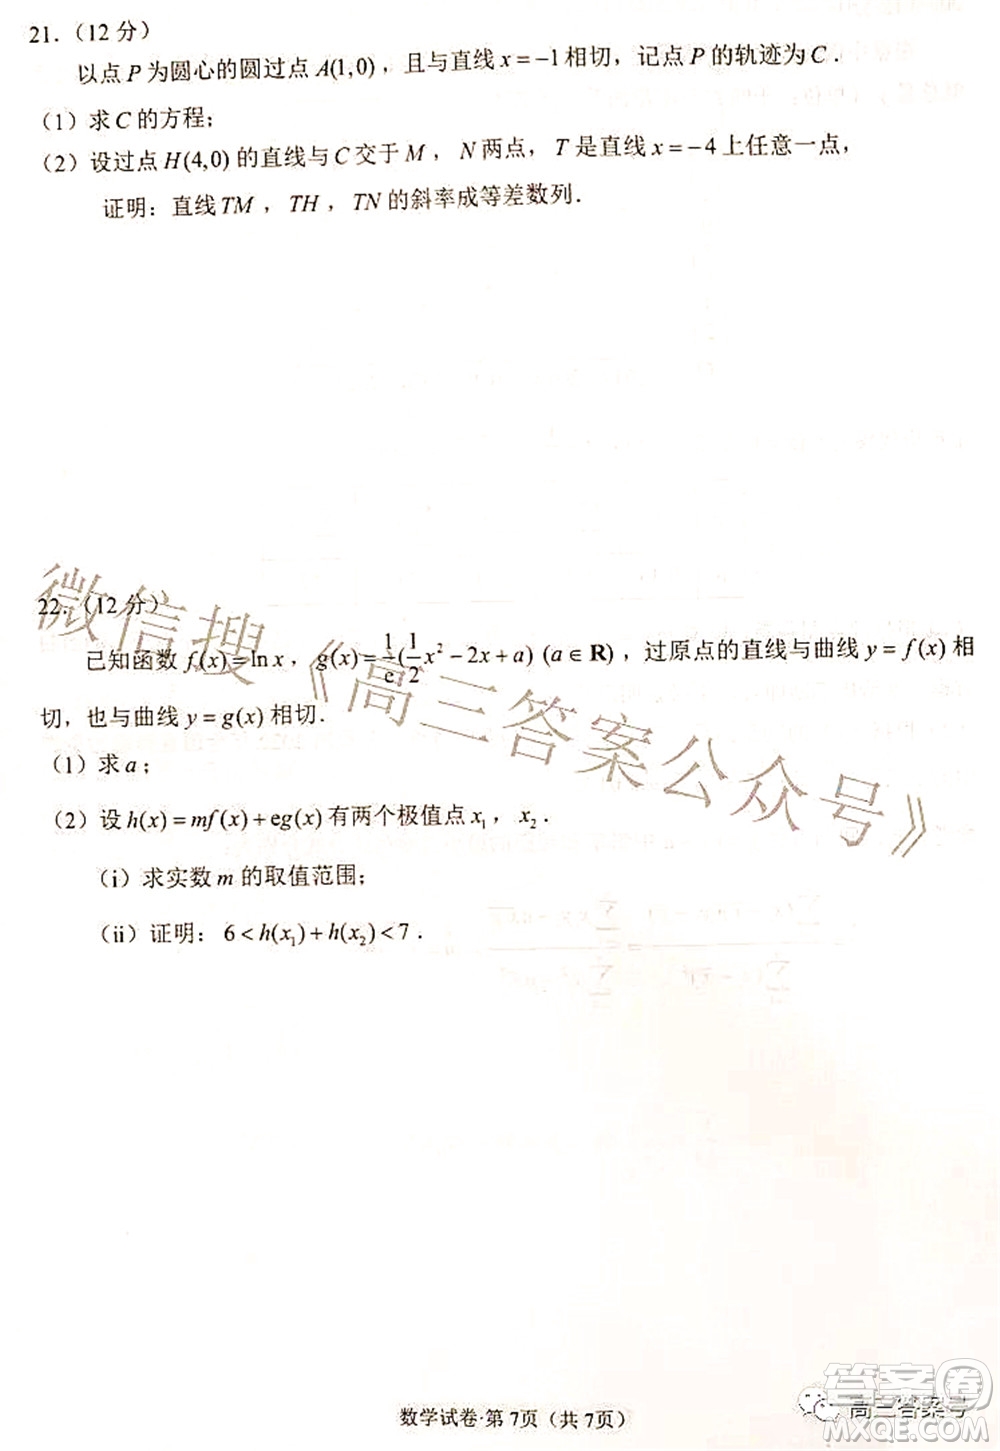 21.（12 分）
以点 P 为圆心的圆过点 A(1,0)，且与直线 x = −1 相切，记点 P 的轨迹为 C．
（1）求 C 的方程；
（2）设过点 H(4,0) 的直线与 C 交于 M，N 两点，T 是直线 x = −4 上任意一点，
证明：直线 TM，TH，TN 的斜率成等差数列．
22.（12 分）
已知函数 f(x) = ln x，g(x) = \frac{1}{e}(\frac{1}{2}x² − 2x + a) (a ∈ R)，过原点的直线与曲线 y = f(x) 相
切，也与曲线 y = g(x) 相切．
（1）求 a；
（2）设 h(x) = mf(x) + eg(x) 有两个极值点 x₁，x₂．
（i）求实数 m 的取值范围；
（ii）证明：6 < h(x₁) + h(x₂) < 7．
微信搜《高三答案公众号》
数学试卷·第 7页（共 7页）
高三答案号
答案圈
MXQE.COM